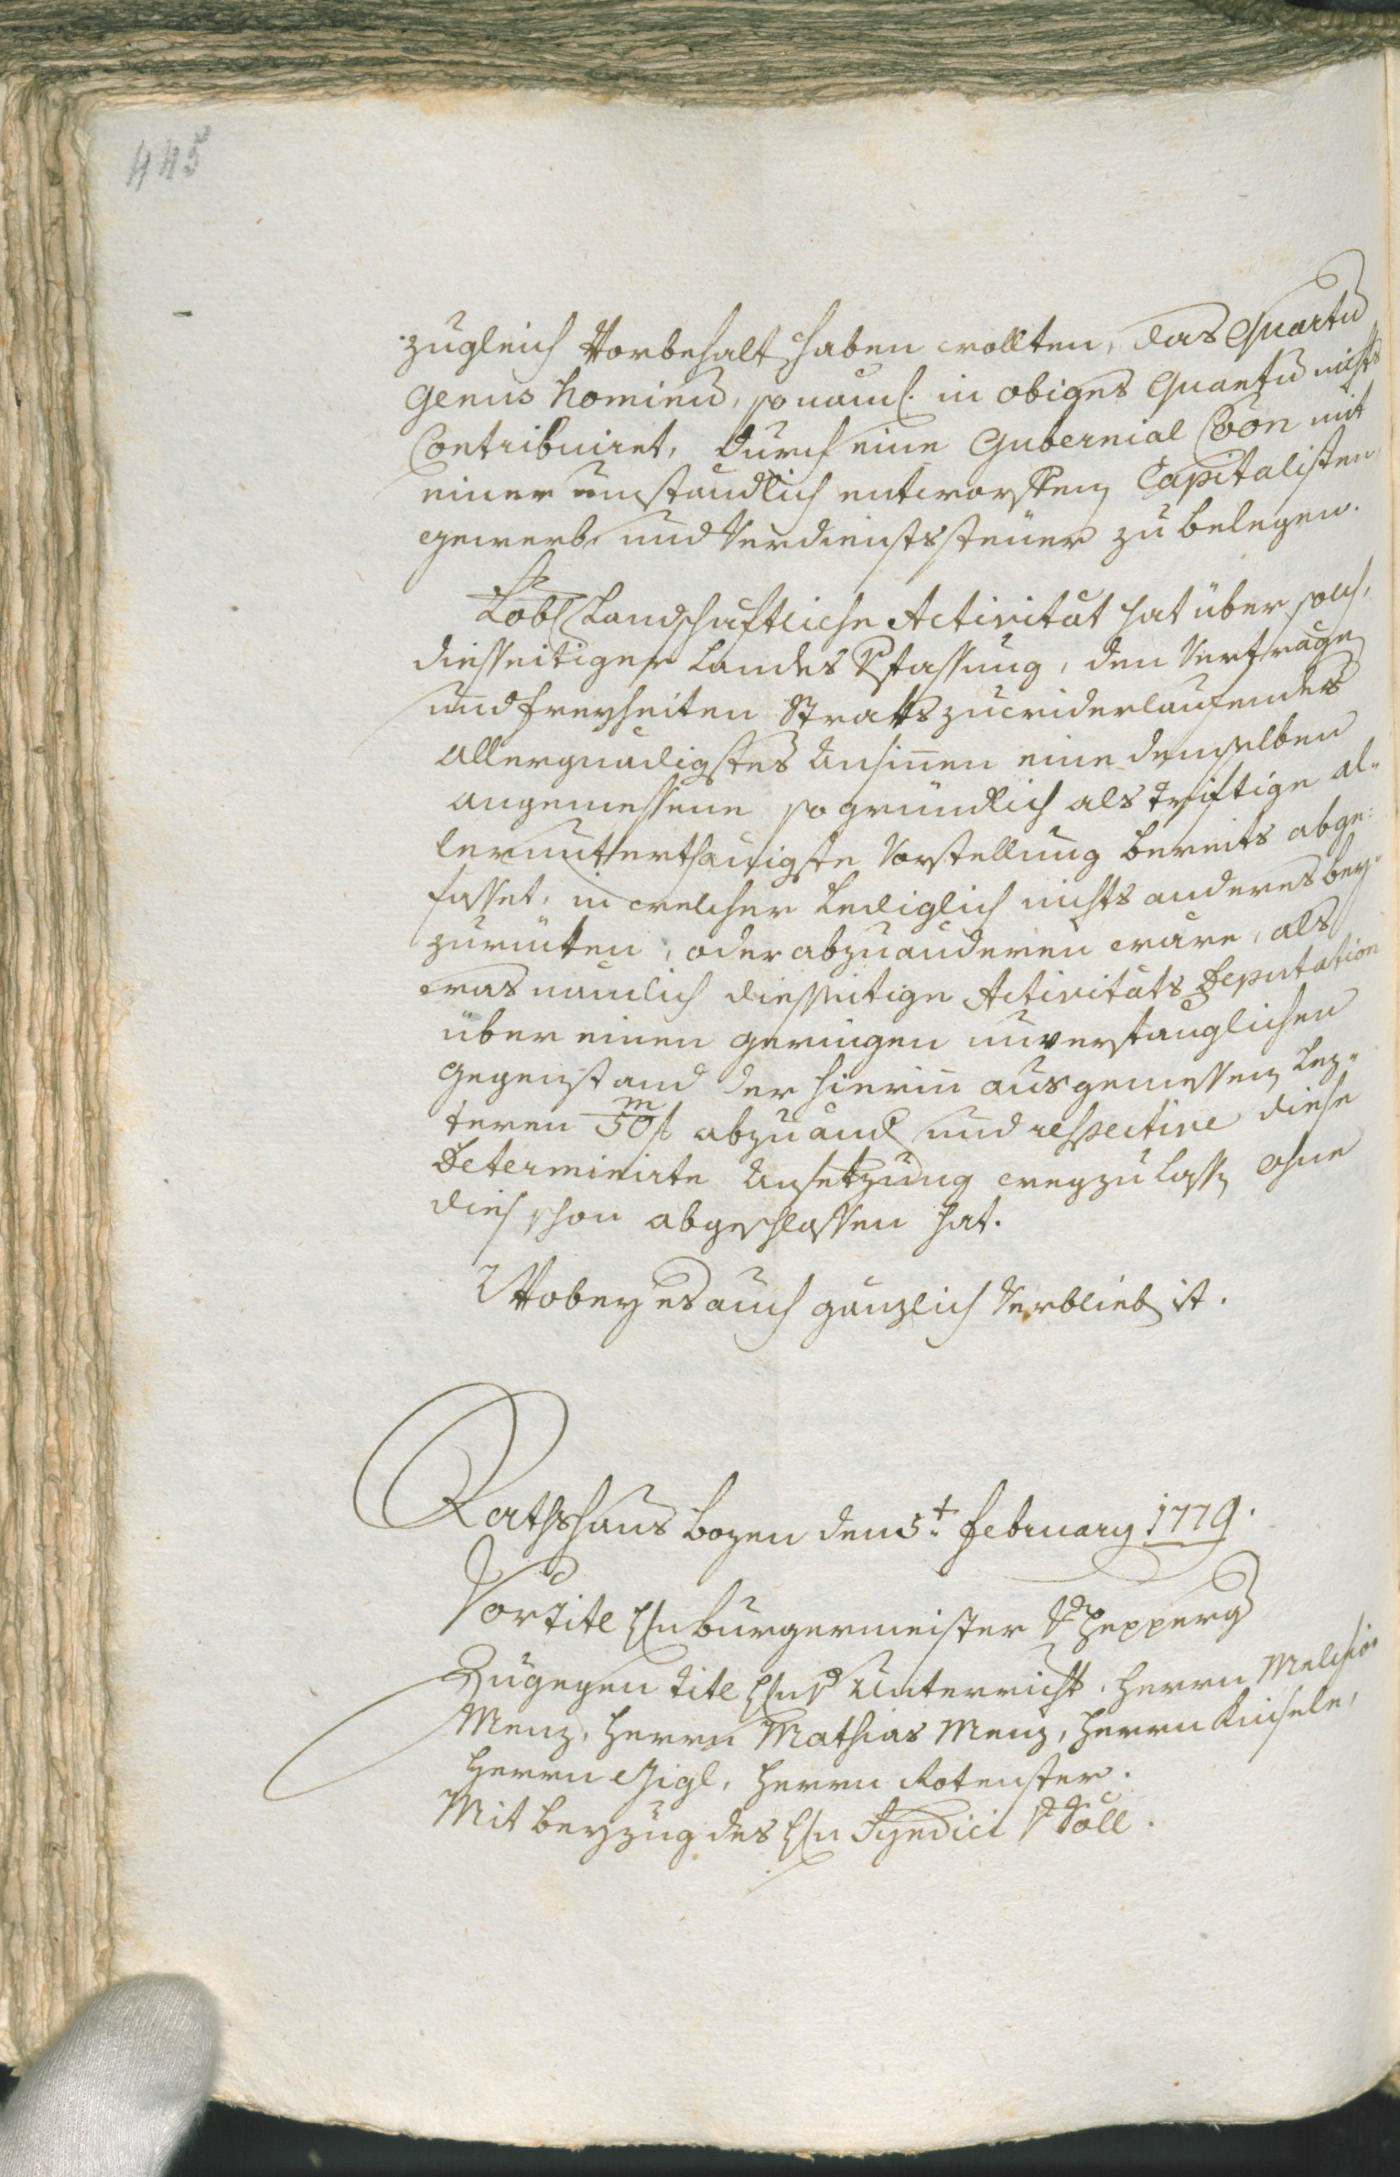 445
zugleich Vorbehalt haben wollten, das Quartu
genus hominu, so naml. in obiges Quantu nichts
Contribuiret, durch eine Gubernial Coon mit
einer umständlich entworffenen Capitalisten,
gewerb und Verdienstssteuer zu belegen.
Lobl Landschaftliche Activitat hat über solch,
diesseitiger Landes Vfassung, den Verträgen
und freyheiten Straks zuwiderlaufendes
allergnädigstes Ansinnen eine demselben
angemessene so gründlich als triftige al„
lerunterthänigste Vorstellung bereits abge:
fasset, in welcher Lediglich nichts anderes bey„
zurucken, oder abzuänderen wäre, als
was nämlich diesseitige Activitäts Deputation
über einen geringen unverfänglichen
gegenstand der hierin ausgemessenen Lez„
teren 50 m f abzuänd und respective diese
Determinirte Ansetzung wegzulassen ohne
dies schon abgeschlossen hat.
Wobey es auch gänzlich Verblieben ist.
Rathshaus bozen den 5t february 1779.
Vor Titl Hn burgermeister V Hepperg
Zugegen Titl Hn V Unterricht, Herrn Melchior
Menz, Herrn Mathias Menz, Herrn Kinsele,
Herrn Gigl, Herrn Rotenster.
Mit beyzug des Hn Syndici V Söll.